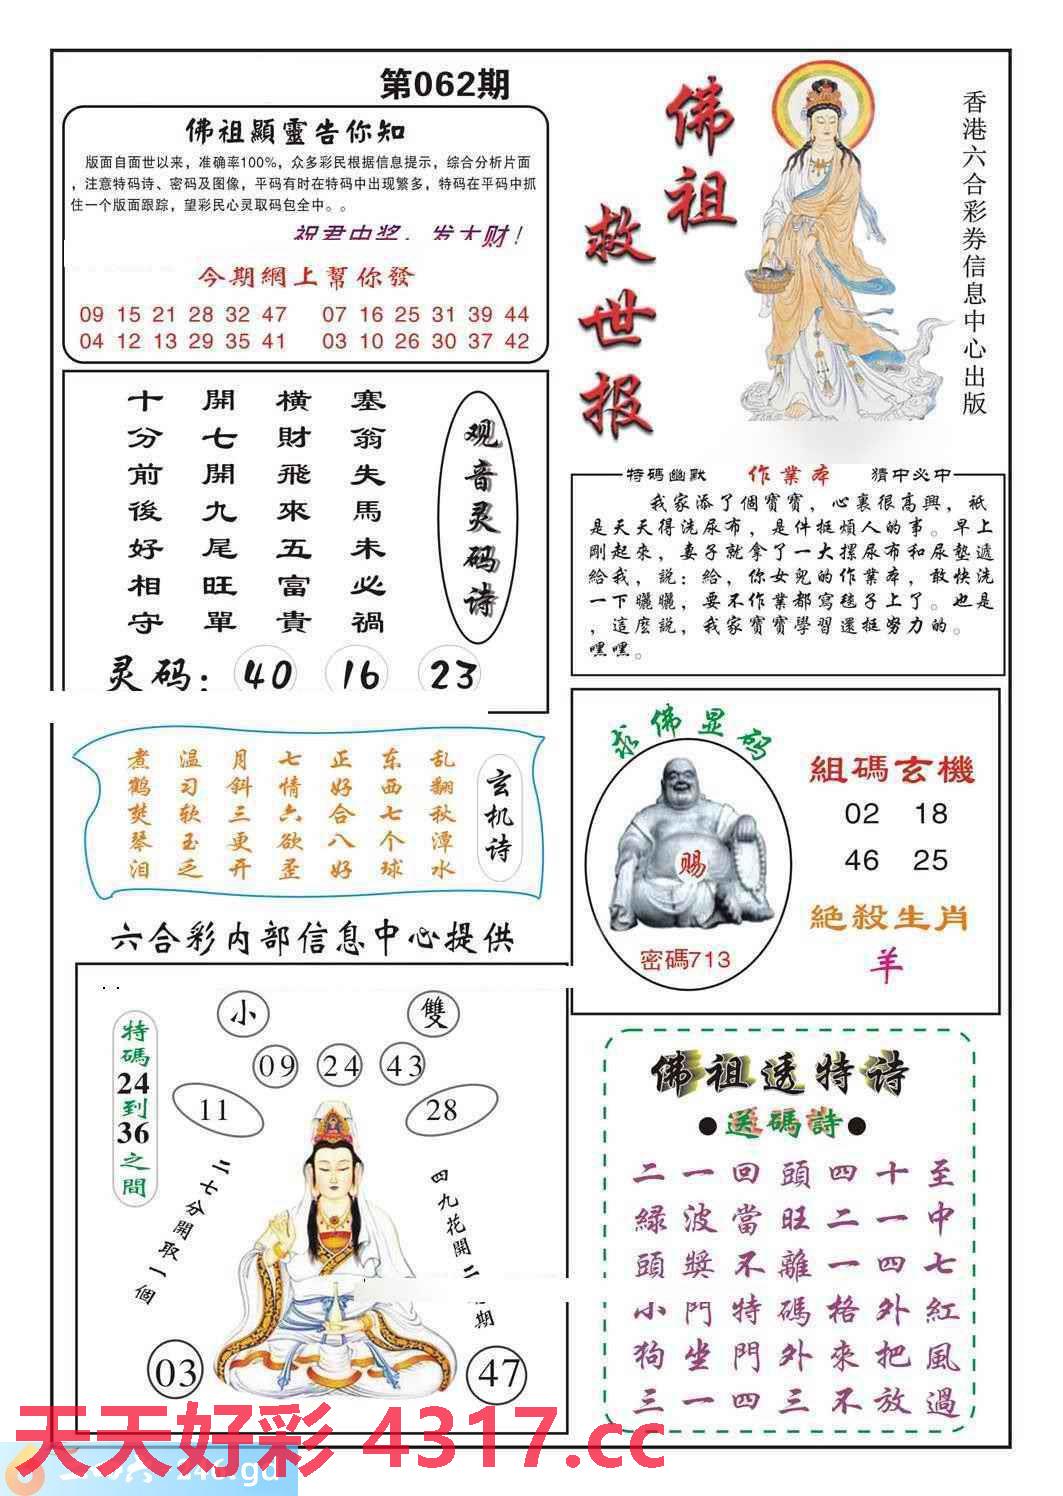 第062期
佛祖顯靈告你知
版面自面世以来，准确率100%，众多彩民根据信息提示，综合分析片面
，注意特码诗、密码及图像，平码有时在特码中出现繁多，特码在平码中抓
住一个版面跟踪，望彩民心灵取码包全中。。
祝君中奖，发大财！
今期網上幫你發
09 15 21 28 32 47 07 16 25 31 39 44
04 12 13 29 35 41 03 10 26 30 37 42
佛祖
救世报
香港六合彩券信息中心出版
观音灵码诗
塞翁失馬未必禍
橫財飛來五富貴
開七開九尾旺單
十分前後好相守
灵码：40 16 23
特码幽默 作業本 猜中必中
我家添了個寶寶，心裏很高興，衹
是天天得洗尿布，是件挺煩人的事。早上
剛起來，妻子就拿了一大摞尿布和尿墊遞
給我，説：給，你女兒的作業本，敢快洗
一下曬曬，要不作業都寫毯子上了。也是
，這麼説，我家寶寶學習還挺努力的。
嘿嘿。
玄机诗
乱翻秋潭水
东西七个球
正好合八好
七情六欲歪
月斜三更开
温习软玉乏
煮鹤焚琴泪
求佛显码
赐
密碼713
組碼玄機
02 18
46 25
絕殺生肖
羊
六合彩内部信息中心提供
特碼24到36之間
小 雙
09 24 43
11 28
二七分開取一個
四九花開二
期
03 47
佛祖透特诗
●送碼詩●
二一回頭四十至
緑波當旺二一中
頭獎不離一四七
小門特碼格外紅
狗坐門外來把風
三一四三不放過
天天好彩 4317.cc
246.gd